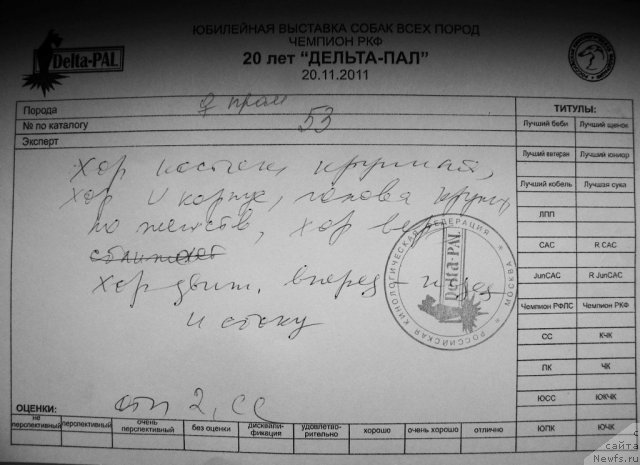 ЮБИЛЕЙНАЯ ВЫСТАВКА СОБАК ВСЕХ ПОРОД
ЧЕМПИОН РКФ
20 лет "ДЕЛЬТА-ПАЛ"
20.11.2011
Delta-PAL
Порода
№ по каталогу 53
Эксперт
Хор костяк, крупная,
хор и корпус, голова крупн
по женств, хор
Хор движ. вперед - назад
и сбоку
отл 2, СС
РОССИЙСКАЯ КИНОЛОГИЧЕСКАЯ ФЕДЕРАЦИЯ + МОСКВА +
Delta-PAL
ОЦЕНКИ:
не перспективный
перспективный
очень перспективный
без оценки
дисквали-фикация
удовлетво-рительно
хорошо
очень хорошо
отлично
ТИТУЛЫ:
Лучший беби Лучший щенок
Лучший ветеран Лучший юниор
Лучший кобель Лучшая сука
ЛПП
CAC R CAC
JunCAC R JunCAC
Чемпион РФЛС Чемпион РКФ
СС КЧК
ПК ЧК
ЮСС ЮКЧК
ЮПК ЮЧК
с сайта
Newfs.ru